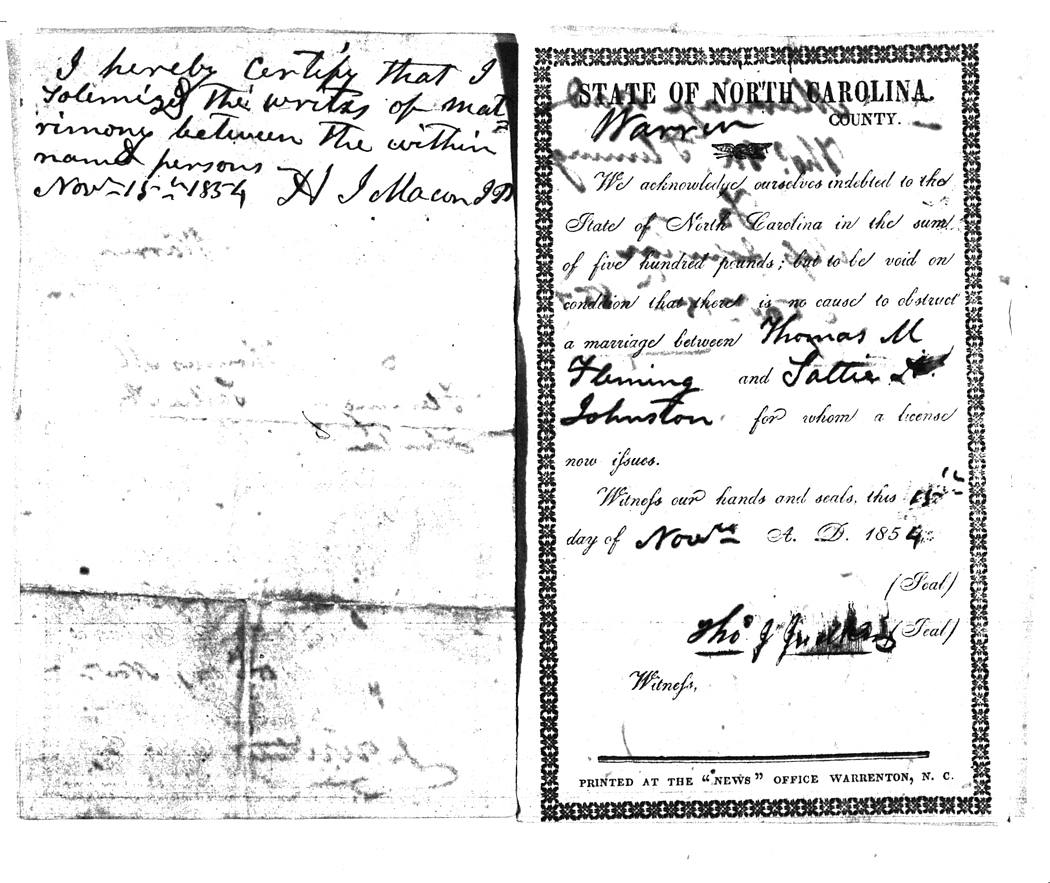 I hereby Certify that I
Solemnized the writes of mat-
rimony between the within
named persons —
Novr 15th 1854 H J Macon JP
STATE OF NORTH CAROLINA.
Warren COUNTY.
We acknowledge ourselves indebted to the
State of North Carolina in the sum
of five hundred pounds; but to be void on
condition that there is no cause to obstruct
a marriage between Thomas M
Fleming and Sallie
Johnston for whom a license
now issues.
Witness our hands and seals, this 15th
day of Novr A. D. 1854
(Seal)
Thos J (Seal)
Witness,
PRINTED AT THE "NEWS" OFFICE WARRENTON, N. C.